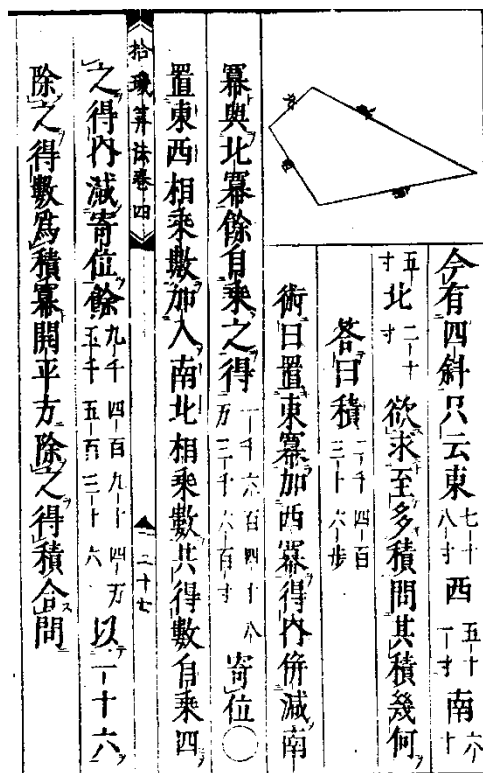 今有四斜只云東七十八寸西五十一寸南六十
五寸北二十寸欲求至多積問其積幾何
答曰積二千四百三十六步
術曰置東冪加西冪得內併減南
冪與北冪餘自乘之得一千六百四十八万三千六百寸寄位○
置東西相乘數加入南北相乘數共得數自乘四
拾璣算法卷四 二十七
之得內減寄位餘九千四百九十四万五千五百三十六以一十六
除之得數為積冪開平方除之得積合問